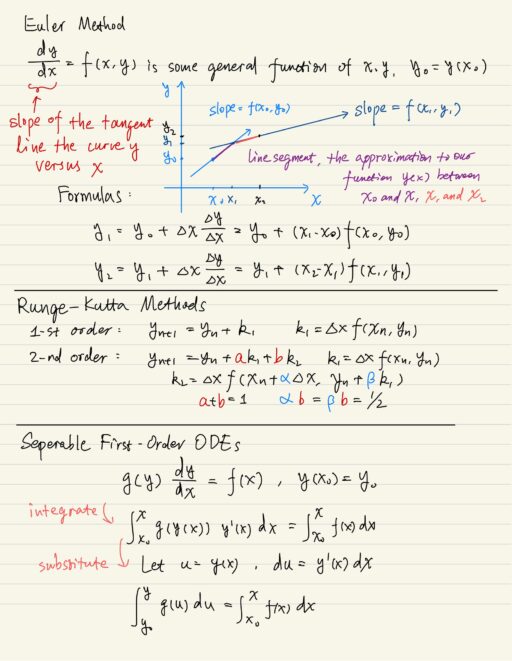 Euler Method
dy/dx = f(x,y) is some general function of x.y, y₀ = y(x₀)
slope of the tangent
line the curve y
versus x
y
slope = f(x₀,y₀)
slope = f(x₁,y₁)
y₂
y₁
y₀
line segment, the approximation to our
function y(x) between
x₀ and x₁ x₁ and x₂
x₀ x₁ x₂ x
Formulas:
y₁ = y₀ + Δx Δy/Δx = y₀ + (x₁-x₀) f(x₀,y₀)
y₂ = y₁ + Δx Δy/Δx = y₁ + (x₂-x₁) f(x₁,y₁)
Runge-Kutta Methods
1-st order: yₙ₊₁ = yₙ + k₁ k₁ = Δx f(xₙ,yₙ)
2-nd order: yₙ₊₁ = yₙ + ak₁ + bk₂ k₁ = Δx f(xₙ,yₙ)
k₂ = Δx f(xₙ + αΔx, yₙ + βk₁)
a+b = 1 αb = βb = 1/2
Seperable First-Order ODEs
g(y) dy/dx = f(x), y(x₀) = y₀
integrate
∫ₓ₀ˣ g(y(x)) y'(x) dx = ∫ₓ₀ˣ f(x) dx
substitute Let u = y(x), du = y'(x) dx
∫ᵧ₀ʸ g(u) du = ∫ₓ₀ˣ f(x) dx